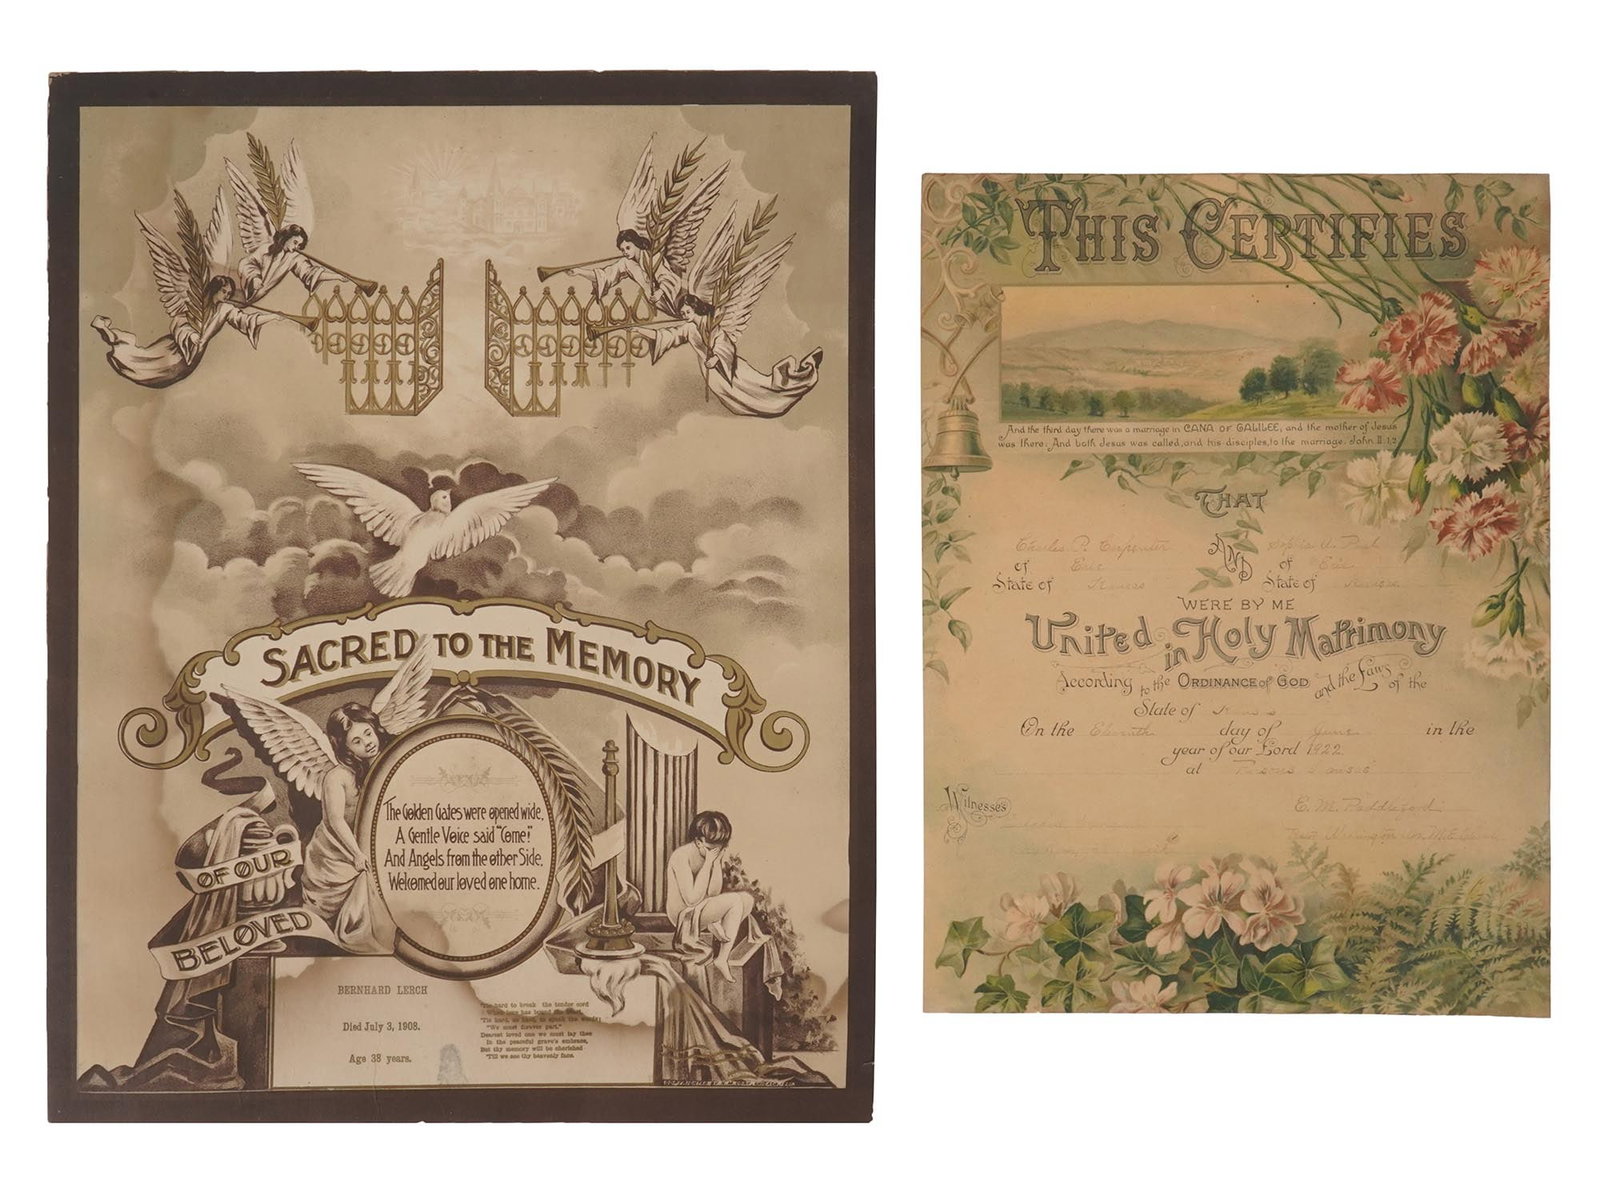 SACRED TO THE MEMORY
OF OUR
BELOVED
The Golden Gates were opened wide,
A Gentle Voice said "Come!"
And Angels from the other Side,
Welcomed our loved one home.
BERNHARD LERCH
Died July 3, 1908.
Age 38 years.
'Tis hard to break the tender cord
When love has bound the heart,
'Tis hard, so hard, to speak the words:
"We must forever part."
Dearest loved one we must lay thee
In the peaceful grave's embrace,
But thy memory will be cherished
'Till we see thy heavenly face.
THIS CERTIFIES
And the third day there was a marriage in CANA OF GALILEE, and the mother of Jesus
was there. And both Jesus was called, and his disciples, to the marriage. John II. 1,2
THAT
Charles P. Carpenter AND
of Erie of Erie
State of Kansas State of Kansas
WERE BY ME
United in Holy Matrimony
According to the ORDINANCE OF GOD and the Laws of the
State of Kansas
On the Eleventh day of June in the
year of our Lord 1922
at Kansas
Witnesses
E. M.